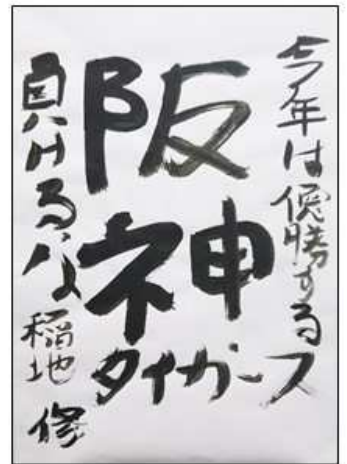 今年は優勝する
阪神
タイガース
負けるな
稲地 修